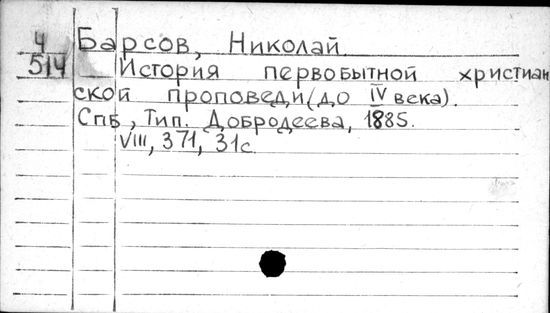 4 Барсов, Николай
514 История первобытной христиан
ской проповеди (до IV века).
Спб, Тип. Добродеева, 1885.
VIII, 371, 31с.